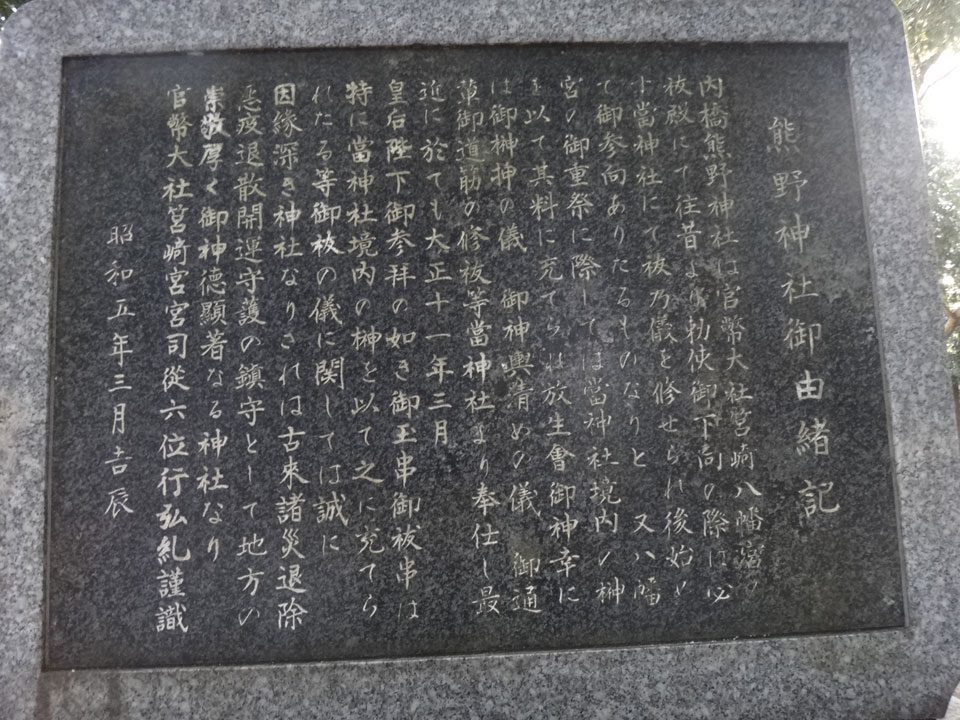 熊野神社御由緒記
内橋熊野神社は官幣大社筥崎八幡宮の
祓殿にて往昔より勅使御下向の際は必
す當神社にて祓乃儀を修せられ後始め
て御参向ありたるものなりと 又八幡
宮の御重祭に際しては當神社境内の榊
を以て其料に充てらは放生會御神幸に
は御榊押の儀 御神輿清めの儀 御通
輦御道筋の修祓等當神社より奉仕し最
近に於ても大正十一年三月
皇后陛下御参拝の如き御玉串御祓串は
特に當神社境内の榊を以て之に充てら
れたる等御祓の儀に関しては誠に
因縁深き神社なりされは古来諸災退除
悪疫退散開運守護の鎮守として地方の
崇敬厚く御神徳顯著なる神社なり
官幣大社筥崎宮宮司従六位行弘糺謹識
昭和五年三月吉辰